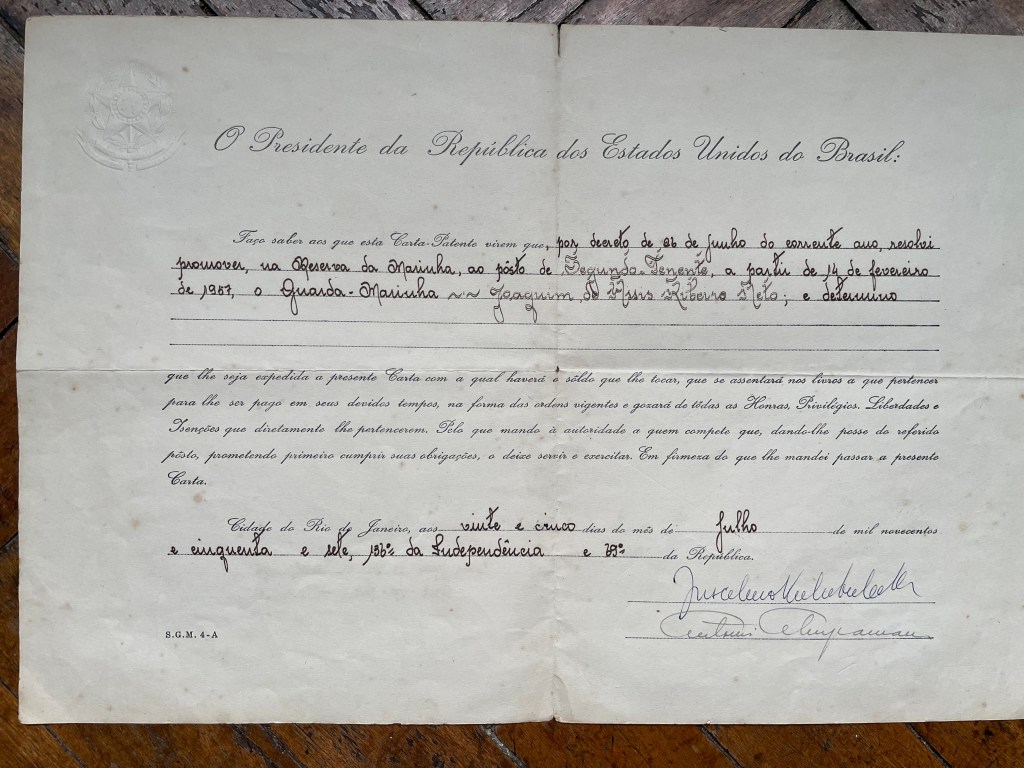 O Presidente da República dos Estados Unidos do Brasil:
Faço saber aos que esta Carta-Patente virem que, por decreto de 26 de Junho do corrente ano, resolvi
promover, na Reserva da Marinha, ao pôsto de Segundo-Tenente, a partir de 14 de fevereiro
de 1957, o Guarda-Marinha ~~ Joaquim de Assis Ribeiro Neto; e determino
que lhe seja expedida a presente Carta com a qual haverá o sôldo que lhe tocar, que se assentará nos livros a que pertencer
para lhe ser pago em seus devidos tempos, na forma das ordens vigentes e gozará de tôdas as Honras, Privilégios, Liberdades e
Isenções que diretamente lhe pertencerem. Pelo que mando à autoridade a quem compete que, dando-lhe posse do referido
pôsto, prometendo primeiro cumprir suas obrigações, o deixe servir e exercitar. Em firmeza do que lhe mandei passar a presente
Carta.
Cidade do Rio de Janeiro, aos vinte e cinco dias do mês de Julho de mil novecentos
e cinquenta e sete, 136º da Independência e 69º da República.
Juscelino Kubitschek
S.G.M. 4-A